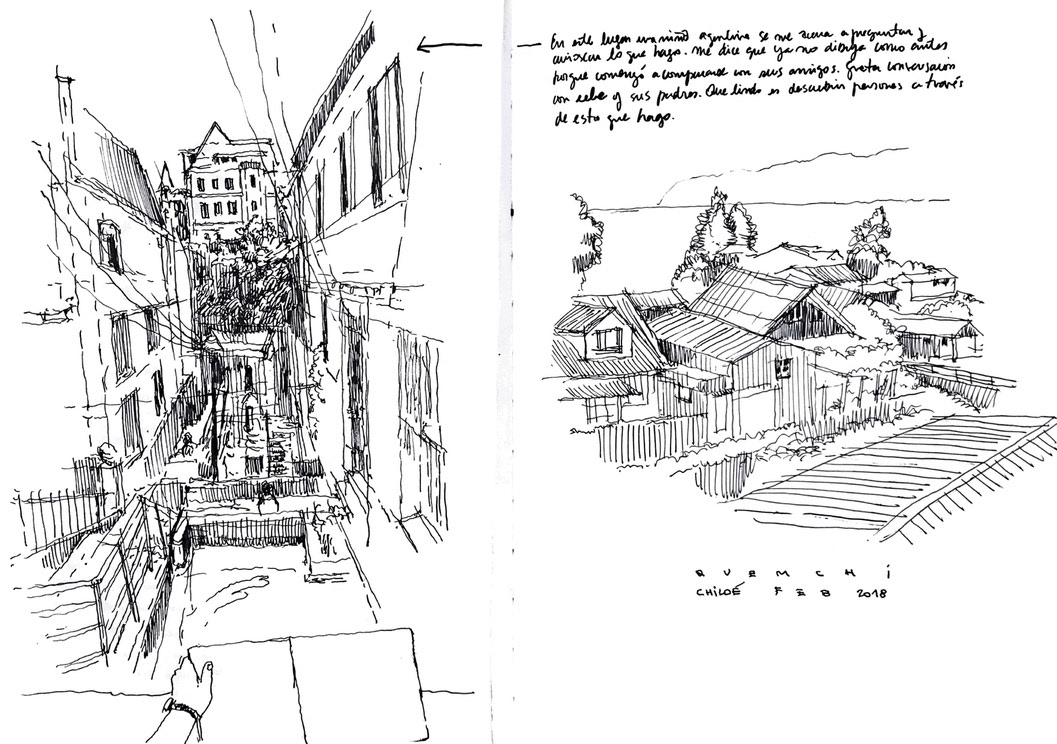 En este lugar una niña argentina se me acerca a preguntar y
curiosear lo que hago. Me dice que ya no dibuja como antes
porque comenzó a compararse con sus amigos. Grata conversación
con ella y sus padres. Que lindo es descubrir personas a través
de esto que hago.
QUEMCHI
CHILOÉ FEB 2018